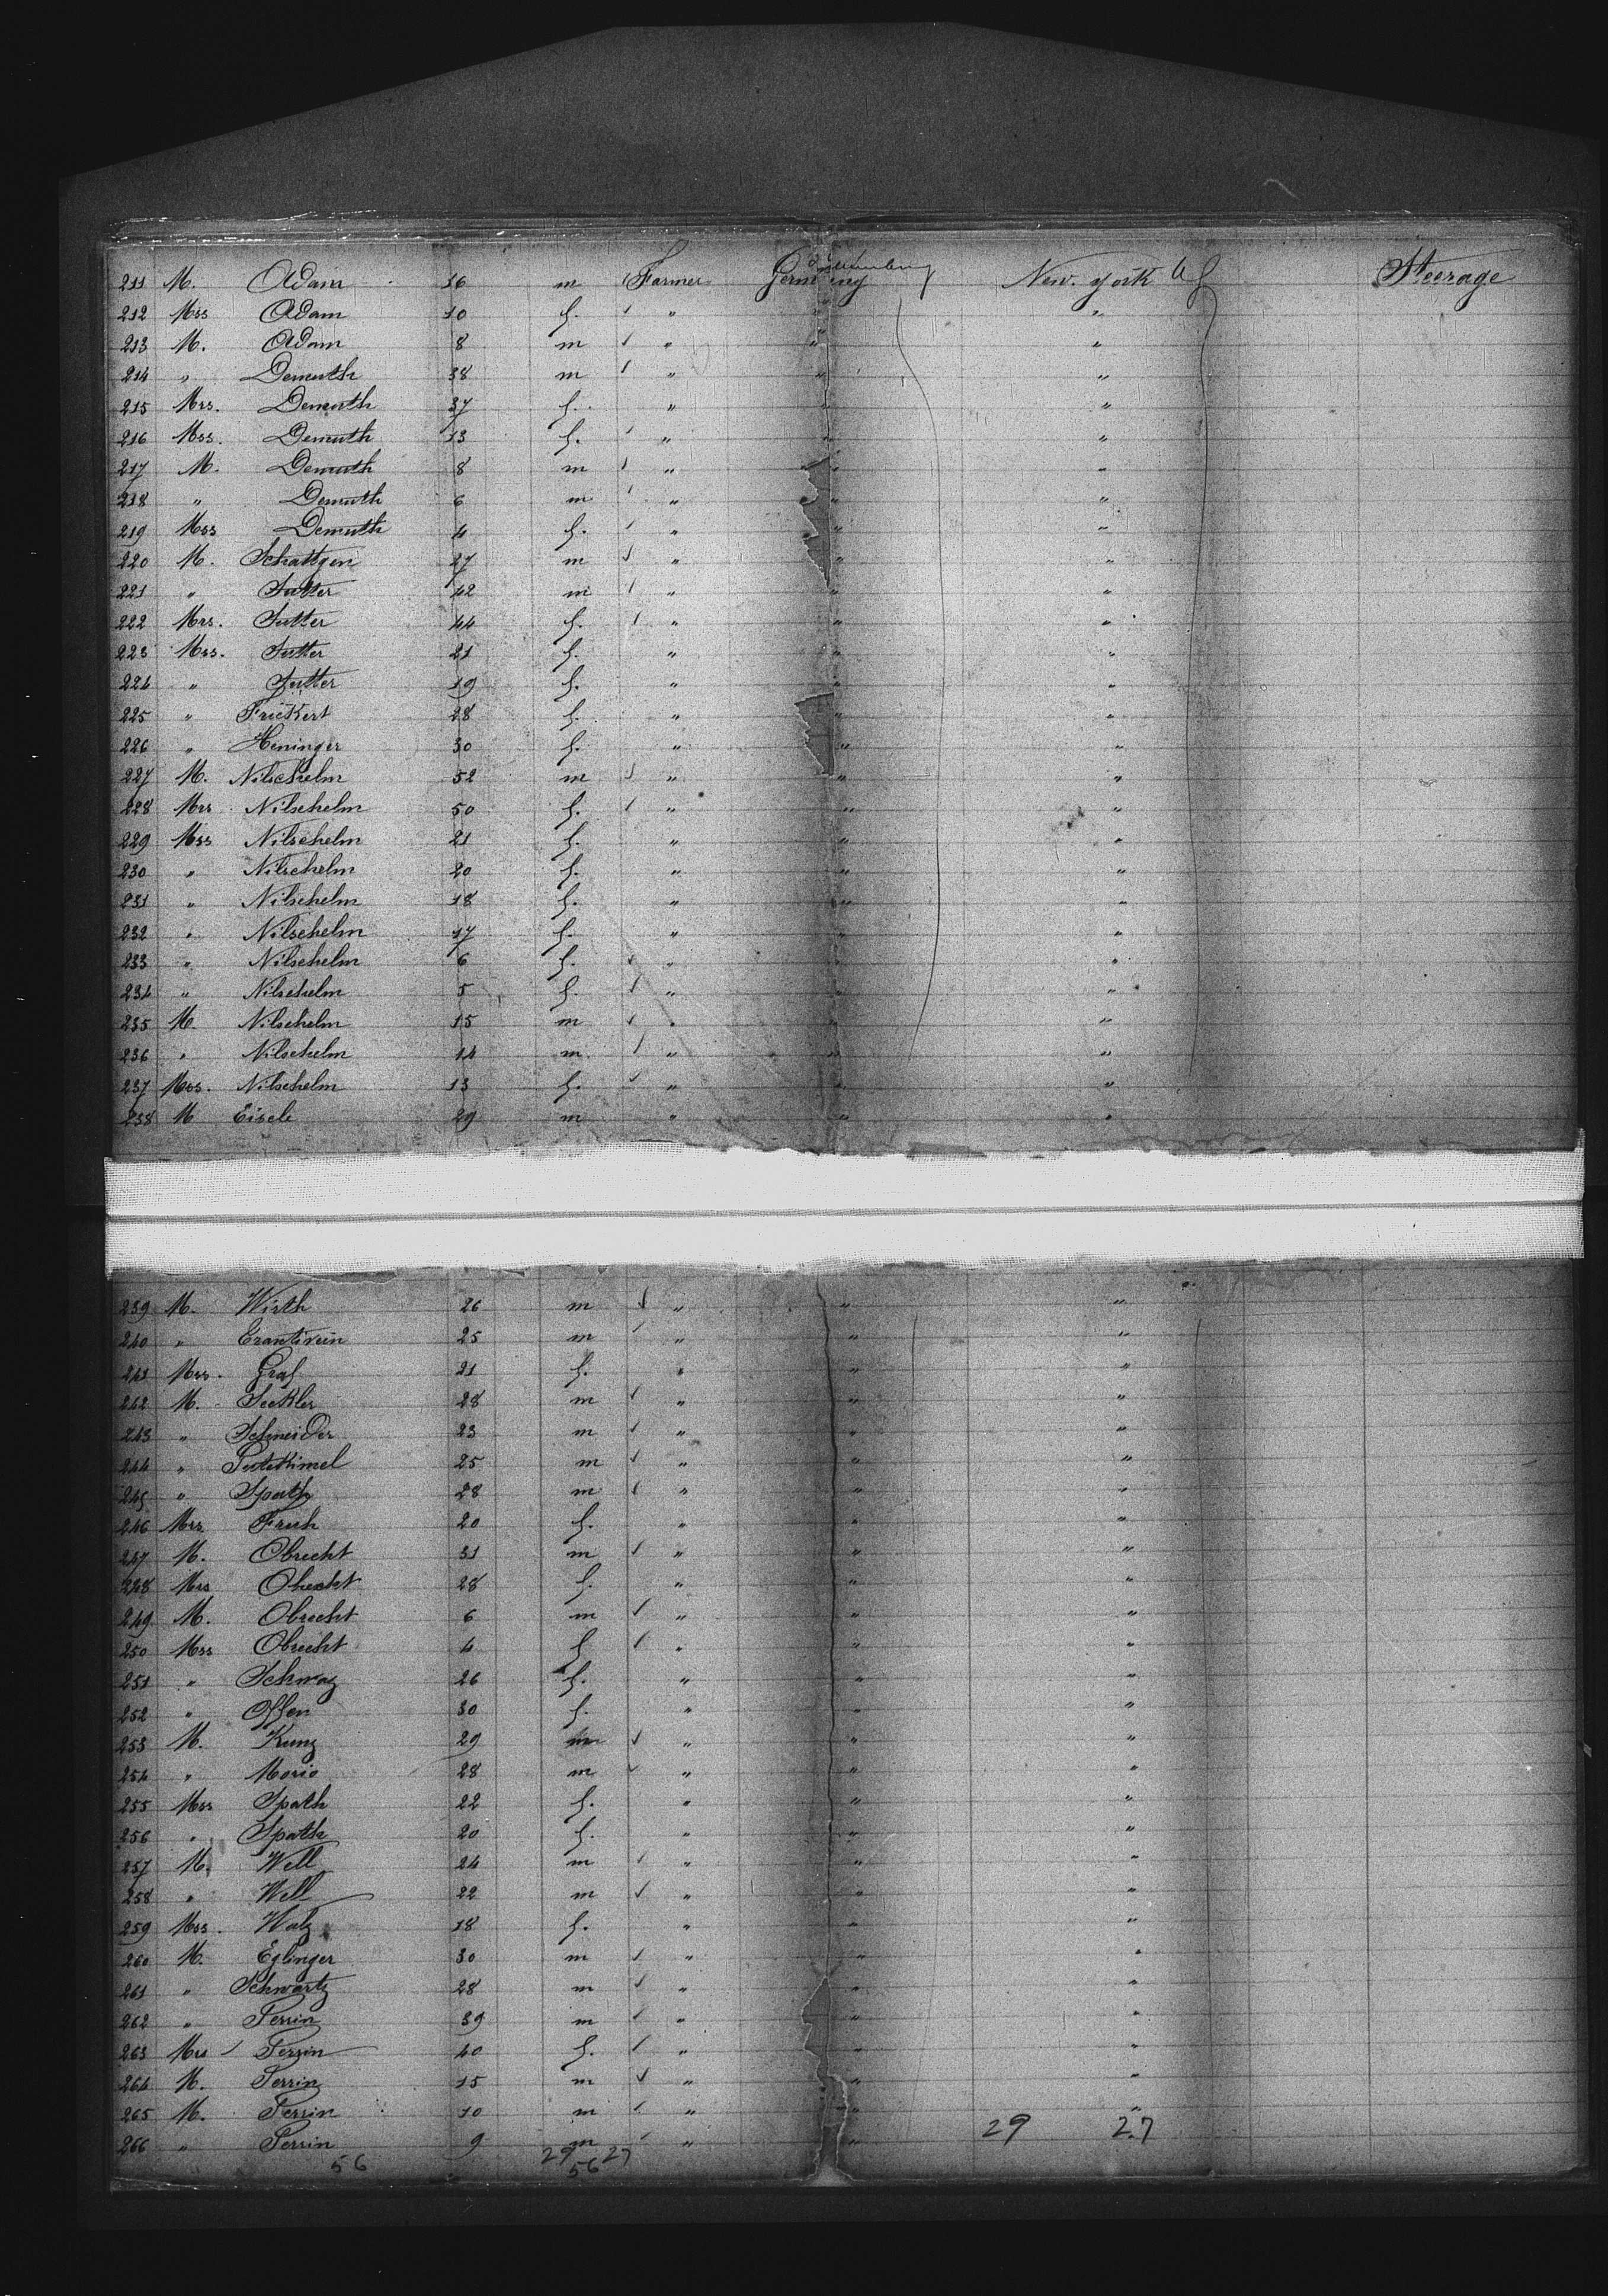 211 M. Adam 16 m Farmer Germany New-york Steerage
212 Mss Adam 10 f. " " "
213 M. Adam 8 m " " "
214 " Demuth 38 m " " "
215 Mrs. Demuth 37 f. " " "
216 Mss. Demuth 13 f. " " "
217 M. Demuth 8 m " " "
218 " Demuth 6 m " " "
219 Mss Demuth 4 f. " " "
220 M. Schattgen 27 m " " "
221 " Sutter 42 m " " "
222 Mrs. Sutter 44 f. " " "
223 Mss. Sutter 21 f. " " "
224 " Sutter 19 f. " " "
225 " Frickert 28 f. " " "
226 " Heninger 30 f. " " "
227 M. Nilschelm 52 m " " "
228 Mrs Nilschelm 50 f. " " "
229 Mss Nilschelm 21 f. " " "
230 " Nilschelm 20 f. " " "
231 " Nilschelm 18 f. " " "
232 " Nilschelm 17 f. " " "
233 " Nilschelm 6 f. " " "
234 " Nilschelm 5 f. " " "
235 M. Nilschelm 15 m " " "
236 " Nilschelm 14 m " " "
237 Mss. Nilschelm 13 f. " " "
238 M Eisele 29 m " " "
239 M. Wirth 26 m " " "
240 " 25 m " " "
241 Mss. Graf 21 f. " " "
242 M. Seckler 28 m " " "
243 " Schneider 23 m " " "
244 " 25 m " " "
245 " Spath 28 m " " "
246 Mss Frich 20 f. " " "
247 M. Obrecht 31 m " " "
248 Mrs Obrecht 28 f. " " "
249 M. Obrecht 6 m " " "
250 Mss Obrecht 4 f " " "
251 " Schwaz 26 f. " " "
252 " Offen 30 f. " " "
253 M. Kunz 29 m " " "
254 " Morio 28 m " " "
255 Mss Spath 22 f. " " "
256 " Spath 20 f. " " "
257 M. Well 24 m " " "
258 " Well 22 m " " "
259 Mss. Walz 18 f. " " "
260 M. Eglinger 30 m " " "
261 " Schwartz 28 m " " "
262 " Perrin 39 m " " "
263 Mrs Perrin 40 f. " " "
264 M. Perrin 15 m " " "
265 M. Perrin 10 m " " "
266 " Perrin 9 m " " 29 27
56 29 27
56